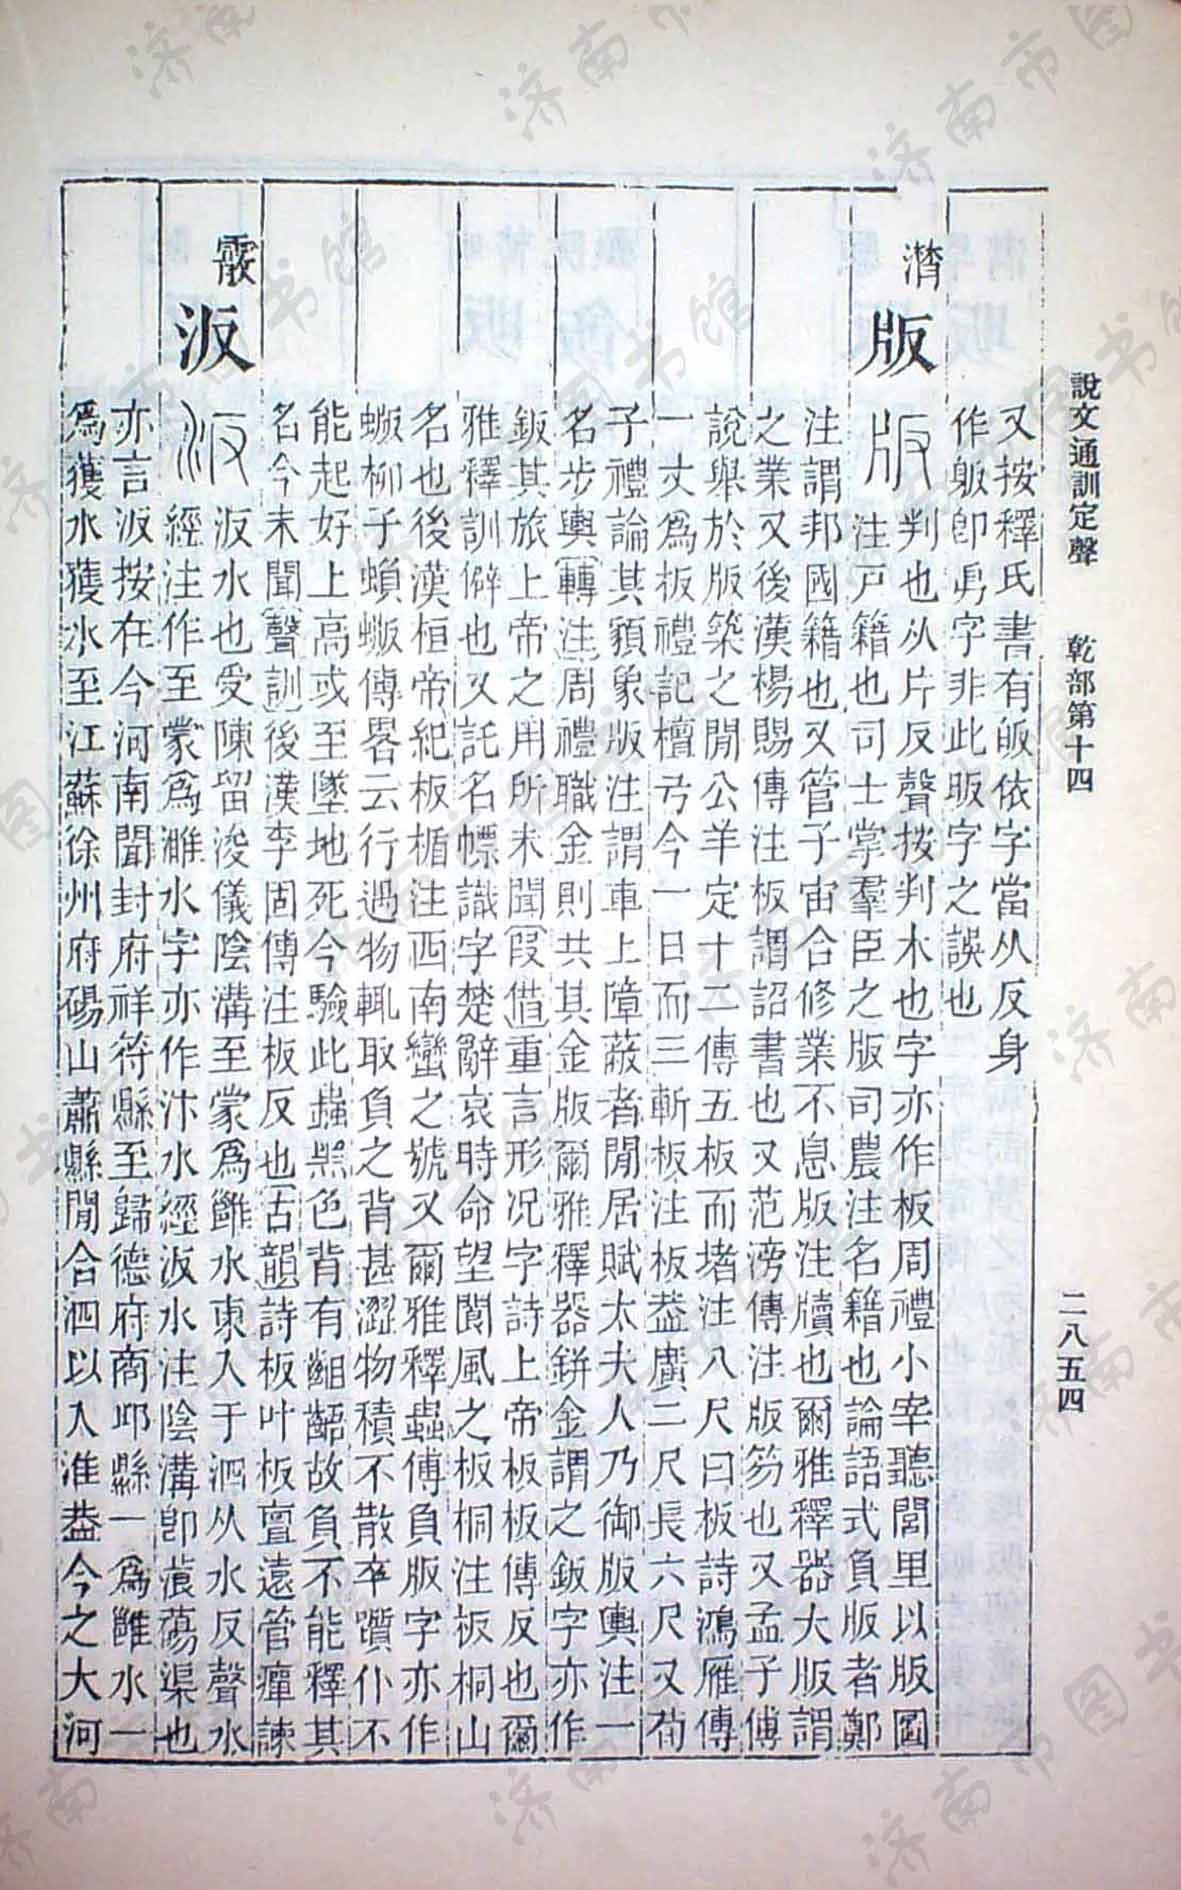 說文通訓定聲　乾部第十四　二八五四
又按釋氏書有皈依字當从反身
作躲卽𠂣字非此昄字之誤也
潸
版
版判也从片反聲按判木也字亦作板周禮小宰聽閭里以版圖
注戸籍也司士掌羣臣之版司農注名籍也論語式負版者鄭
注謂邦國籍也又管子宙合修業不息版注牘也爾雅釋器大版謂
之業又後漢楊賜傳注板謂詔書也又范滂傳注版笏也又孟子傅
說舉於版築之閒公羊定十二傳五板而堵注八尺曰板詩鴻雁傳
一丈爲板禮記檀弓今一日而三斬板注板葢廣二尺長六尺又荀
子禮論其䫉象版注謂車上障蔽者閒居賦太夫人乃御版輿注一
名步輿轉注周禮職金則共其金版爾雅釋器鉼金謂之鈑字亦作
鈑其旅上帝之用所未聞叚借重言形况字詩上帝板板傳反也爾
雅釋訓僻也又託名幖識字楚辭哀時命望閬風之板桐注板桐山
名也後漢桓帝紀板楯注西南蠻之號又爾雅釋蟲傅負版字亦作
蝂柳子蝜蝂傳畧云行遇物輒取負之背甚澀物積不散卒躓仆不
能起好上高或至墜地死今驗此蟲黑色背有齟齬故負不能釋其
名今未聞聲訓後漢李固傳注板反也古韻詩板叶板亶遠管癉諫
霰
汳
汳汳水也受陳留浚儀陰溝至蒙爲雝水東入于泗从水反聲水
經注作至蒙爲濉水字亦作汴水經汳水注陰溝卽蒗蕩渠也
亦言汳按在今河南開封府祥符縣至歸德府商邱縣一爲雝水一
爲獲水獲水至江蘇徐州府碭山蕭縣閒合泗以入淮葢今之大河